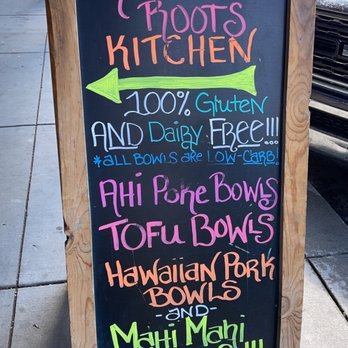 ROOTS
KITCHEN
100% Gluten
AND Dairy FREE!!!
*ALL BOWLS ARE LOW-CARB!
AHI POKE BOWLS
TOFU BOWLS
HAWAIIAN PORK
BOWLS
-AND-
MAHI MAHI